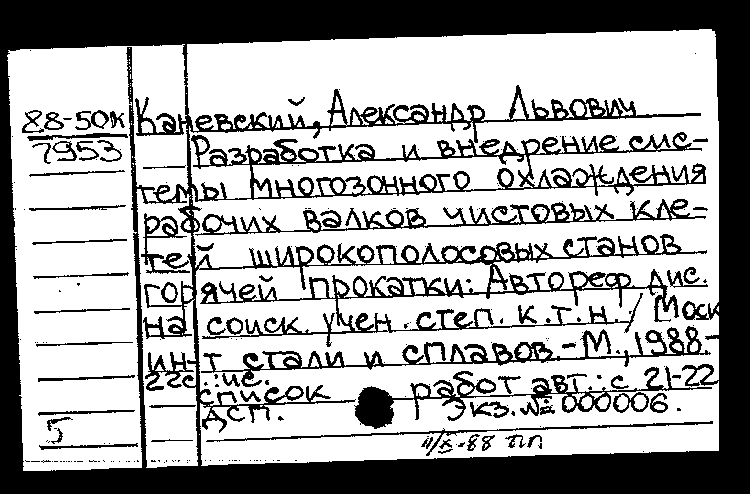 88-50к
7953
Каневский, Александр Львович
Разработка и внедрение сис-
темы многозонного охлаждения
рабочих валков чистовых кле-
тей широкополосовых станов
горячей прокатки: Автореф. дис.
на соиск. учен. степ. к.т.н. / Моск
ин-т стали и сплавов.-М., 1988.-
22с.: ис.
список работ авт.: с. 21-22
ДСП. Экз. № 000006.
5